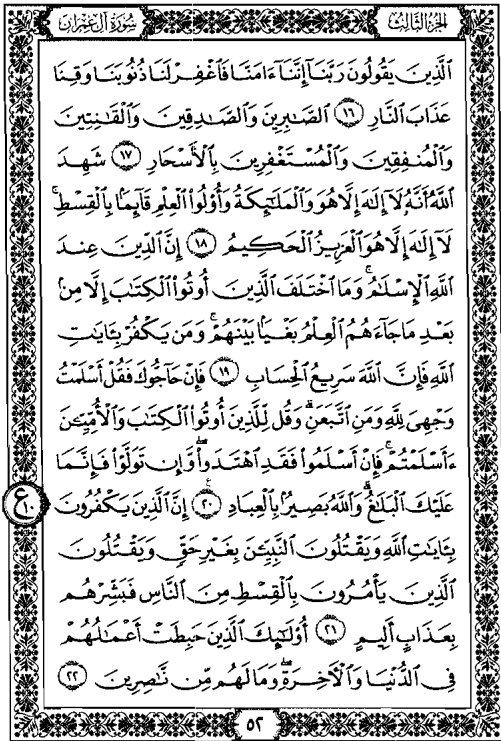 الجزء الثالث
سورة آل عمران
ٱلَّذِينَ يَقُولُونَ رَبَّنَآ إِنَّنَآ ءَامَنَّا فَٱغْفِرْ لَنَا ذُنُوبَنَا وَقِنَا
عَذَابَ ٱلنَّارِ ١٦ ٱلصَّٰبِرِينَ وَٱلصَّٰدِقِينَ وَٱلْقَٰنِتِينَ
وَٱلْمُنفِقِينَ وَٱلْمُسْتَغْفِرِينَ بِٱلْأَسْحَارِ ١٧ شَهِدَ
ٱللَّهُ أَنَّهُۥ لَآ إِلَٰهَ إِلَّا هُوَ وَٱلْمَلَٰٓئِكَةُ وَأُو۟لُوا۟ ٱلْعِلْمِ قَآئِمًۢا بِٱلْقِسْطِ ۚ
لَآ إِلَٰهَ إِلَّا هُوَ ٱلْعَزِيزُ ٱلْحَكِيمُ ١٨ إِنَّ ٱلدِّينَ عِندَ
ٱللَّهِ ٱلْإِسْلَٰمُ ۗ وَمَا ٱخْتَلَفَ ٱلَّذِينَ أُوتُوا۟ ٱلْكِتَٰبَ إِلَّا مِنۢ
بَعْدِ مَا جَآءَهُمُ ٱلْعِلْمُ بَغْيًۢا بَيْنَهُمْ ۗ وَمَن يَكْفُرْ بِـَٔايَٰتِ
ٱللَّهِ فَإِنَّ ٱللَّهَ سَرِيعُ ٱلْحِسَابِ ١٩ فَإِنْ حَآجُّوكَ فَقُلْ أَسْلَمْتُ
وَجْهِىَ لِلَّهِ وَمَنِ ٱتَّبَعَنِ ۗ وَقُل لِّلَّذِينَ أُوتُوا۟ ٱلْكِتَٰبَ وَٱلْأُمِّيِّـۧنَ
ءَأَسْلَمْتُمْ ۚ فَإِنْ أَسْلَمُوا۟ فَقَدِ ٱهْتَدَوا۟ ۖ وَّإِن تَوَلَّوْا۟ فَإِنَّمَا
عَلَيْكَ ٱلْبَلَٰغُ ۗ وَٱللَّهُ بَصِيرٌۢ بِٱلْعِبَادِ ٢٠ إِنَّ ٱلَّذِينَ يَكْفُرُونَ
بِـَٔايَٰتِ ٱللَّهِ وَيَقْتُلُونَ ٱلنَّبِيِّـۧنَ بِغَيْرِ حَقٍّ وَيَقْتُلُونَ
ٱلَّذِينَ يَأْمُرُونَ بِٱلْقِسْطِ مِنَ ٱلنَّاسِ فَبَشِّرْهُم
بِعَذَابٍ أَلِيمٍ ٢١ أُو۟لَٰٓئِكَ ٱلَّذِينَ حَبِطَتْ أَعْمَٰلُهُمْ
فِى ٱلدُّنْيَا وَٱلْءَاخِرَةِ وَمَا لَهُم مِّن نَّٰصِرِينَ ٢٢
ع ١٠
٥٢